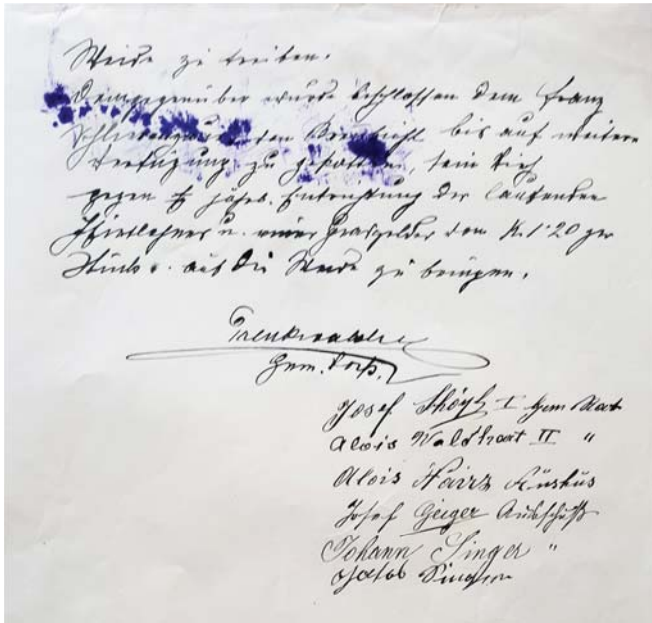 Weide zu treiben.
Demgegenüber wurde beschlossen dem Franz
bis auf weitere
Verfügung zu gestatten, sein Vieh
gegen jährl. Entrichtung der laufenden
Hirtlohnes u. eines Grasgeldes von K. 1·20 per
Stück auf die Weide zu bringen.
Trenkwalder
Gem. Vorst.
Josef I Gem Rat
Alois Waldhart II "
Alois Nairz
Josef Geiger Ausschuß
Johann Singer "
Jakob Singer